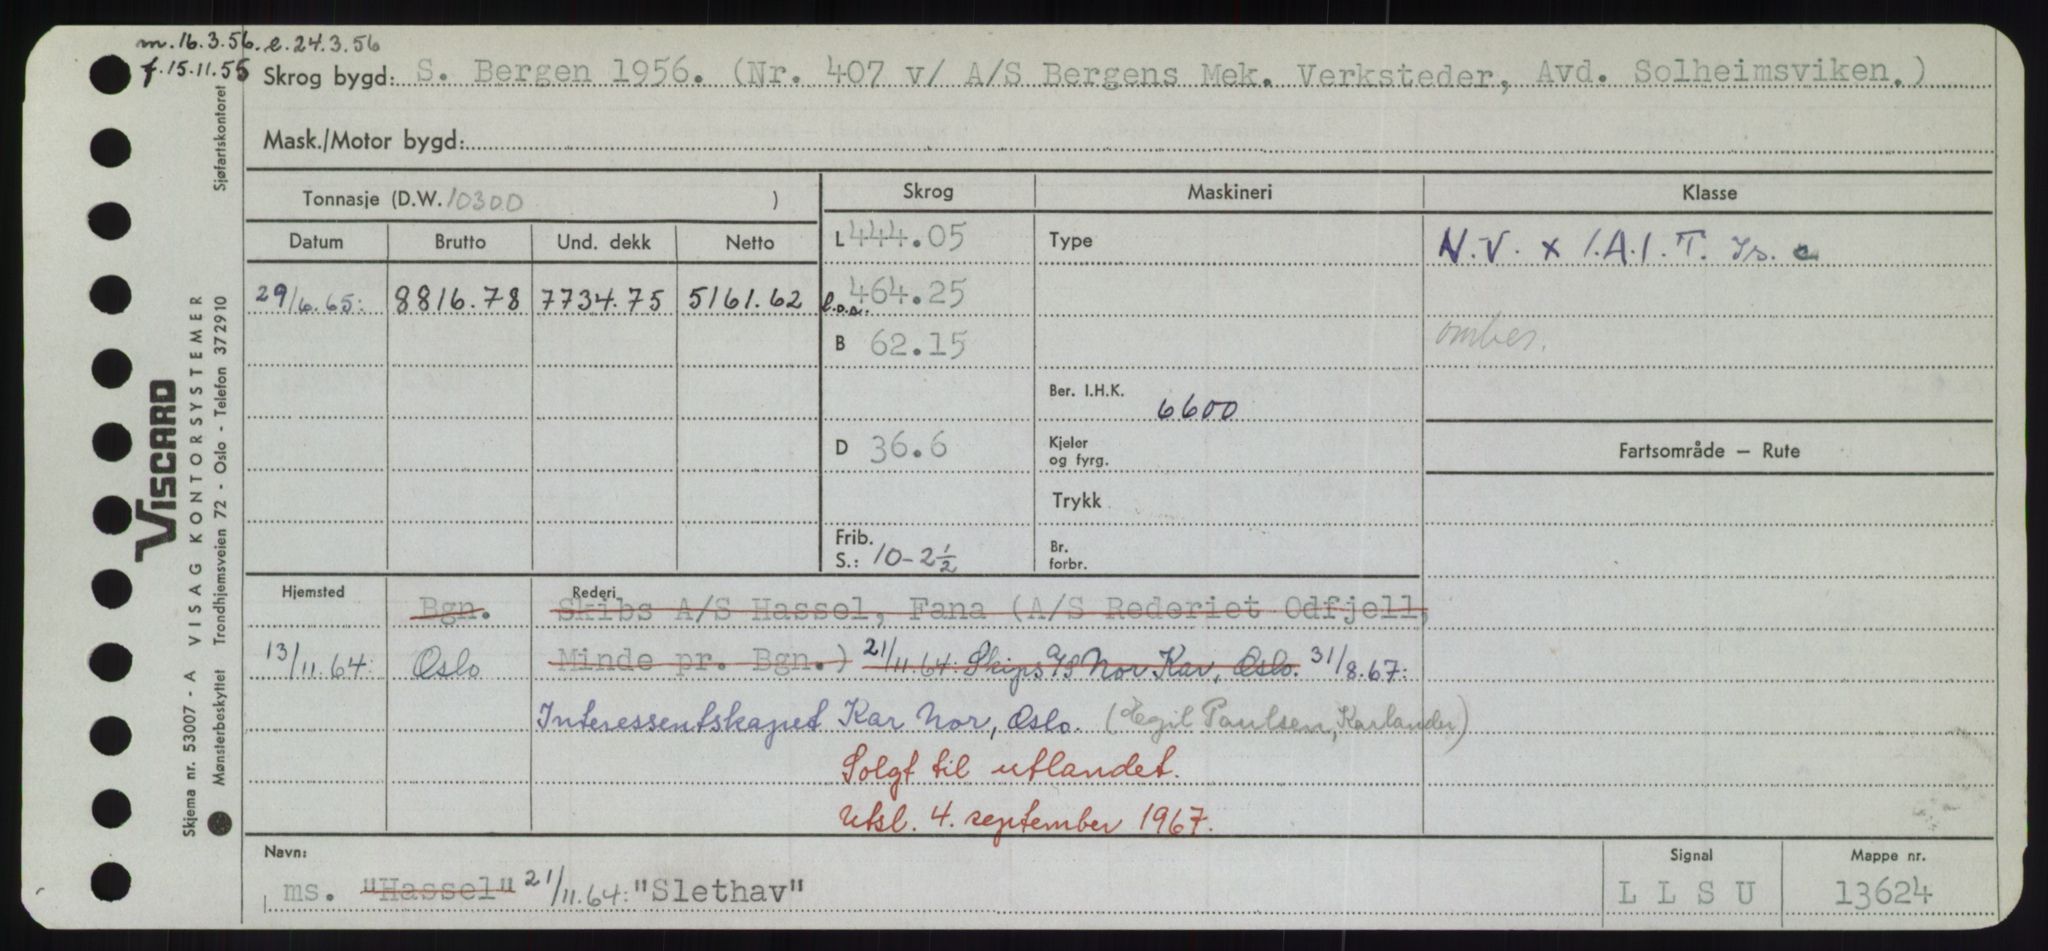 m. 16.3.56. e. 24.3.56
f. 15.11.55 Skrog bygd: S. Bergen 1956. (Nr. 407 v/ A/S Bergens Mek. Verksteder, Avd. Solheimsviken.)
Mask./Motor bygd:
Tonnasje (D.W. 10300 ) Skrog Maskineri Klasse
Datum Brutto Und. dekk Netto L 444.05 Type N.V. x I.A.I.T. Is. c
29/6.65: 8816.78 7734.75 5161.62 l.o.a. 464.25
B 62.15
Ber. I.H.K. 6600
D 36.6 Kjeler og fyrg. Fartsområde — Rute
Trykk
Frib. S.: 10-2½ Br. forbr.
Hjemsted Bgn. Rederi Skibs A/S Hassel, Fana (A/S Rederiet Odfjell,
13/11.64: Oslo Minde pr. Bgn.) 21/11.64: Skips A/S Nor Kar, Oslo. 31/8.67:
Interessentskapet Kar Nor, Oslo. (Egil Paulsen, Karlander)
Solgt til utlandet.
Utsl. 4. september 1967.
Navn: Signal Mappe nr.
ms. "Hassel" 21/11.64: "Slethav" LLSU 13624
VISCARD
VISAG KONTORSYSTEMER
Skjema nr. 53007 - A
Mønsterbeskyttet Trondhjemsveien 72 - Oslo - Telefon 372910 Sjøfartskontoret